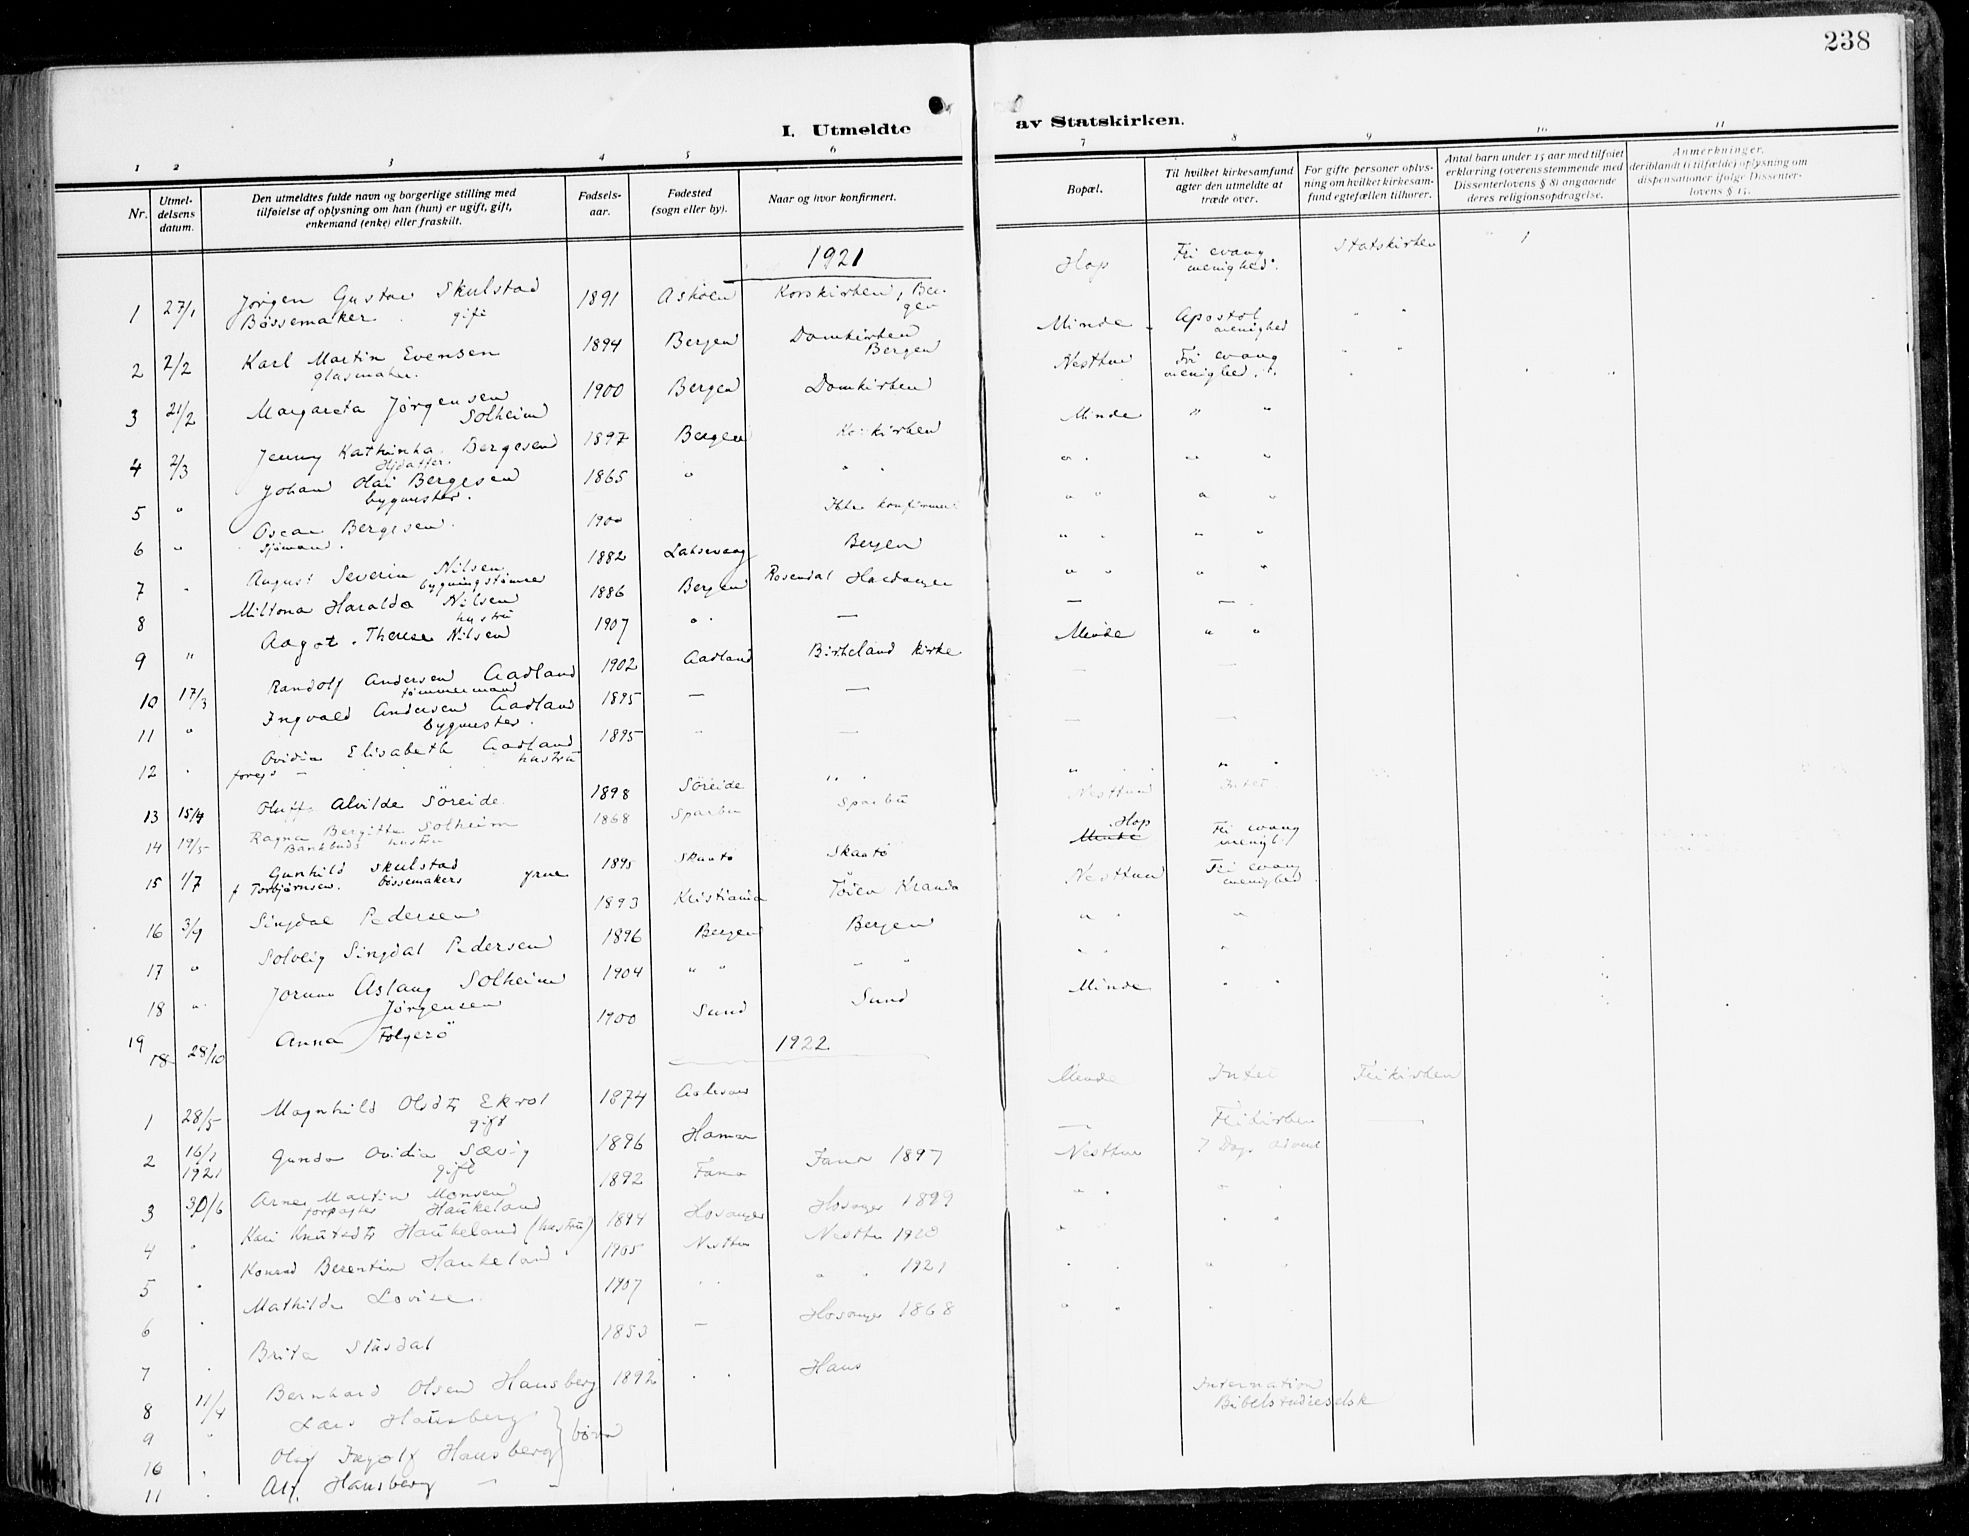 238
I. Utmeldte av Statskirken.
1 2 3 4 5 6 7 8 9 10 11
Nr.
Utmel-
delsens
datum.
Den utmeldtes fulde navn og borgerlige stilling med
tilføielse af oplysning om han (hun) er ugift, gift,
enkemand (enke) eller fraskilt.
Fødsels-
aar.
Fødested
(sogn eller by).
Naar og hvor konfirmert.
Bopæl.
Til hvilket kirkesamfund
agter den utmeldte at
træde over.
For gifte personer oplys-
ning om hvilket kirkesam-
fund egtefællen tilhører.
Antal barn under 15 aar med tilføiet
erklæring (overensstemmende med
Dissenterlovens § 8) angaaende
deres religionsopdragelse.
Anmerkninger,
deriblandt (i tilfælde) oplysning om
dispensationer ifølge Dissenter-
lovens § 15.
1921
1 27/1 Jørgen Gustav Skulstad 1891 Askøen Korskirken, Ber- Hop Fri evang Statskirken 1
Bøssemaker. gift gen menighed.
2 2/2 Karl Martin Evensen 1894 Bergen Domkirken Minde Apostol " "
glasmaker. Bergen menighed
3 21/2 Margareta Jørgensen 1900 Bergen Domkirken Nesttun Fri evang " "
Solheim menighed
4 2/3 Jenny Kathinka Bergesen 1897 Bergen Korskirken Minde " "
Hjdatter.
5 " Johan Olai Bergesen 1865 " " " " " "
bygmester.
6 " Oscar Bergesen. 1900 Ikke " " " "
Sjømand.
7 " August Severin Nilsen 1882 Laksevaag Bergen " " " "
bygningstømrer
8 Miltona Haralda Nilsen 1886 Bergen Rosendal Hardanger " " " "
hustru
9 " Aagot Therese Nilsen 1907 " — — —
10 17/3 Randolf Andersen Aadland 1902 Aadland Birkeland kirke Minde " "
tømmermand
11 " Ingvald Andersen Aadland 1895 — — — —
bygmester.
12 Ovidia Elisabeth Aadland 1895 " — — —
hustru
13 15/4 Alvilde Söreide 1898 Söreide " " " "
14 19/5 Ragna Bergitte Solheim 1868 Sparbu Sparbu Nesttun Intet
hustru
15 1/7 Gunhild Skulstad 1895 Skaatø Skaatø Minde Hop Fri evang
f Torbjørnsen. bøssemakers menigh.
16 3/9 Singdal Pedersen 1893 Kristiania Nesttun Fri evang
menighed
17 " Solveig Singdal Pedersen 1896 Bergen Bergen " " "
18 " Jorunn Aslaug Solheim 1904 " " " " " "
Jørgensen
19 18 28/10 Anna Folgerö 1900 Sund Sund Minde " "
1922
1 28/5 Magnhild Olsdtr Ekrol 1874 Aalesund Minde Intet Frikirken
gift
2 16/1 Gunda Ovidia Sævig 1896 Hamar — Frikirken —
1921 gift
3 30/6 Arne Martin Monsen 1892 Fana Fana 1897 Nesttun 7 Dags advent
forpagter Haukeland
4 " Kari Knutsdtr Haukeland (hustru) 1894 Hosanger Hosanger 1899 " " " "
5 " Konrad Berentin Haukeland 1905 Nesttun Nesttun 1920 " " "
6 " Mathilde Lovise 1907 " " " " 1921 " " " "
7 " Brita Stusdal 1853 — Hosanger 1868 " " "
8 11/4 Bernhard Olsen Hausberg 1892 " " Haus Internation
9 " Lars Hausberg børn Bibelstudieselsk
10 " Olaf Hausberg
11 " Alf Hausberg —